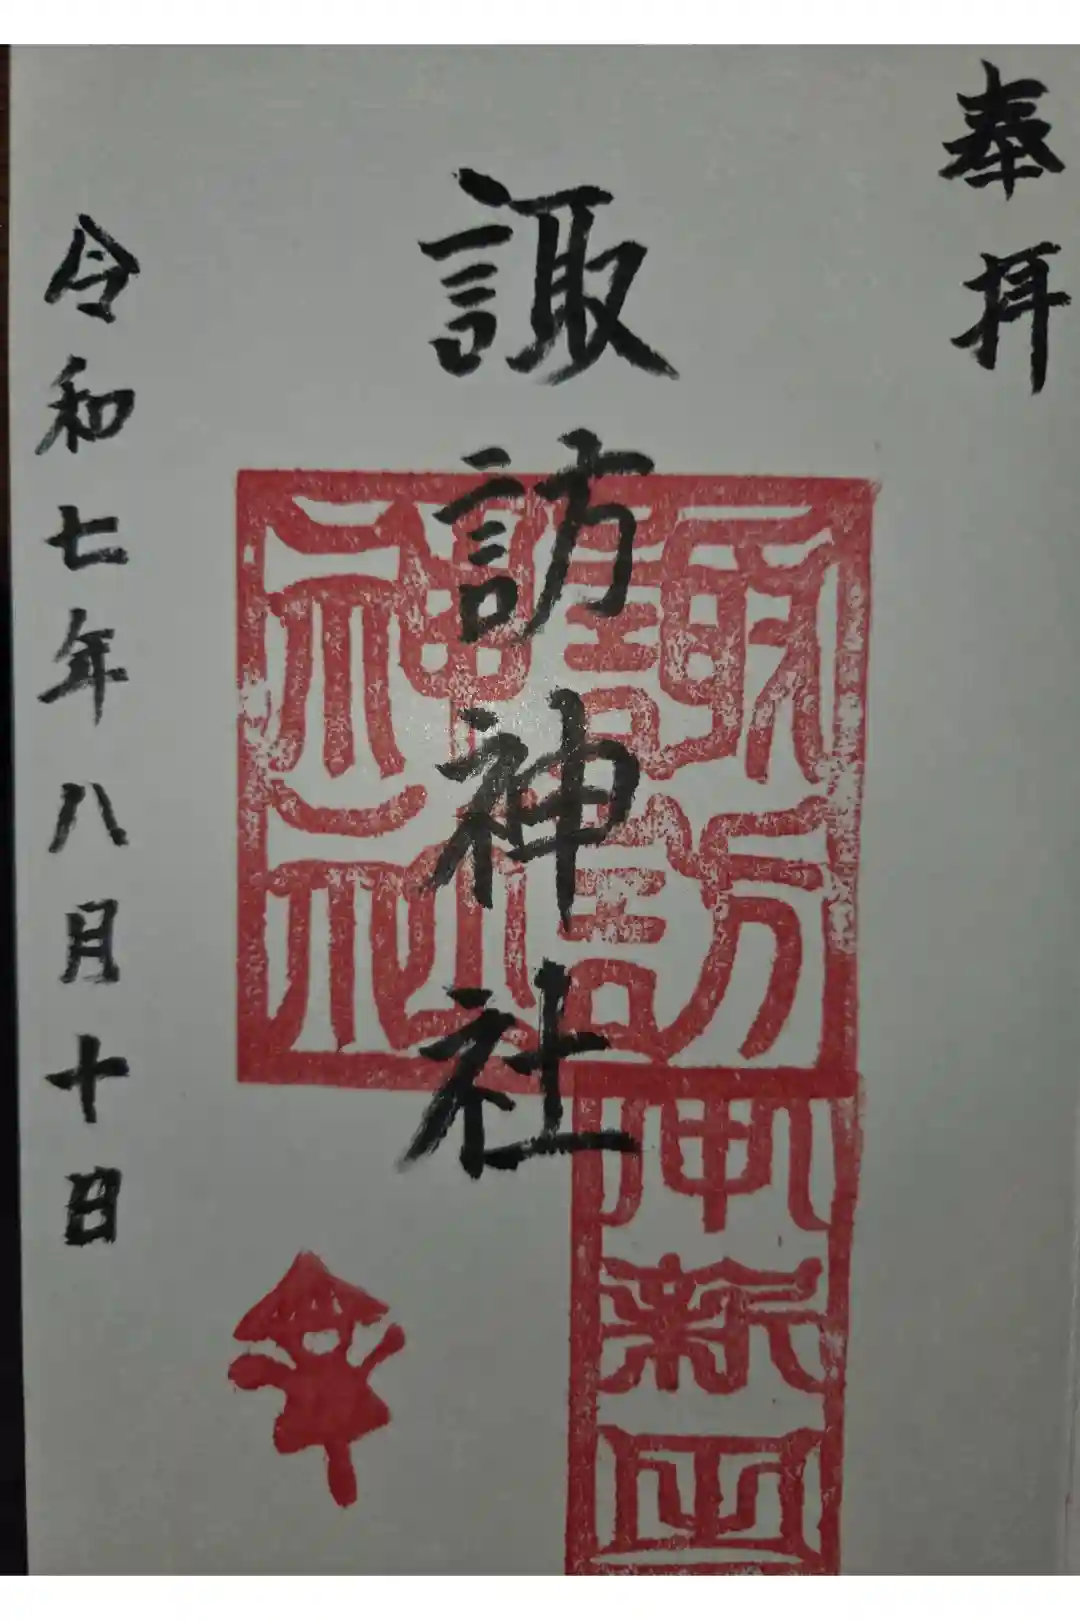 奉拝
諏訪神社
諏訪
神社
令和七年八月十日